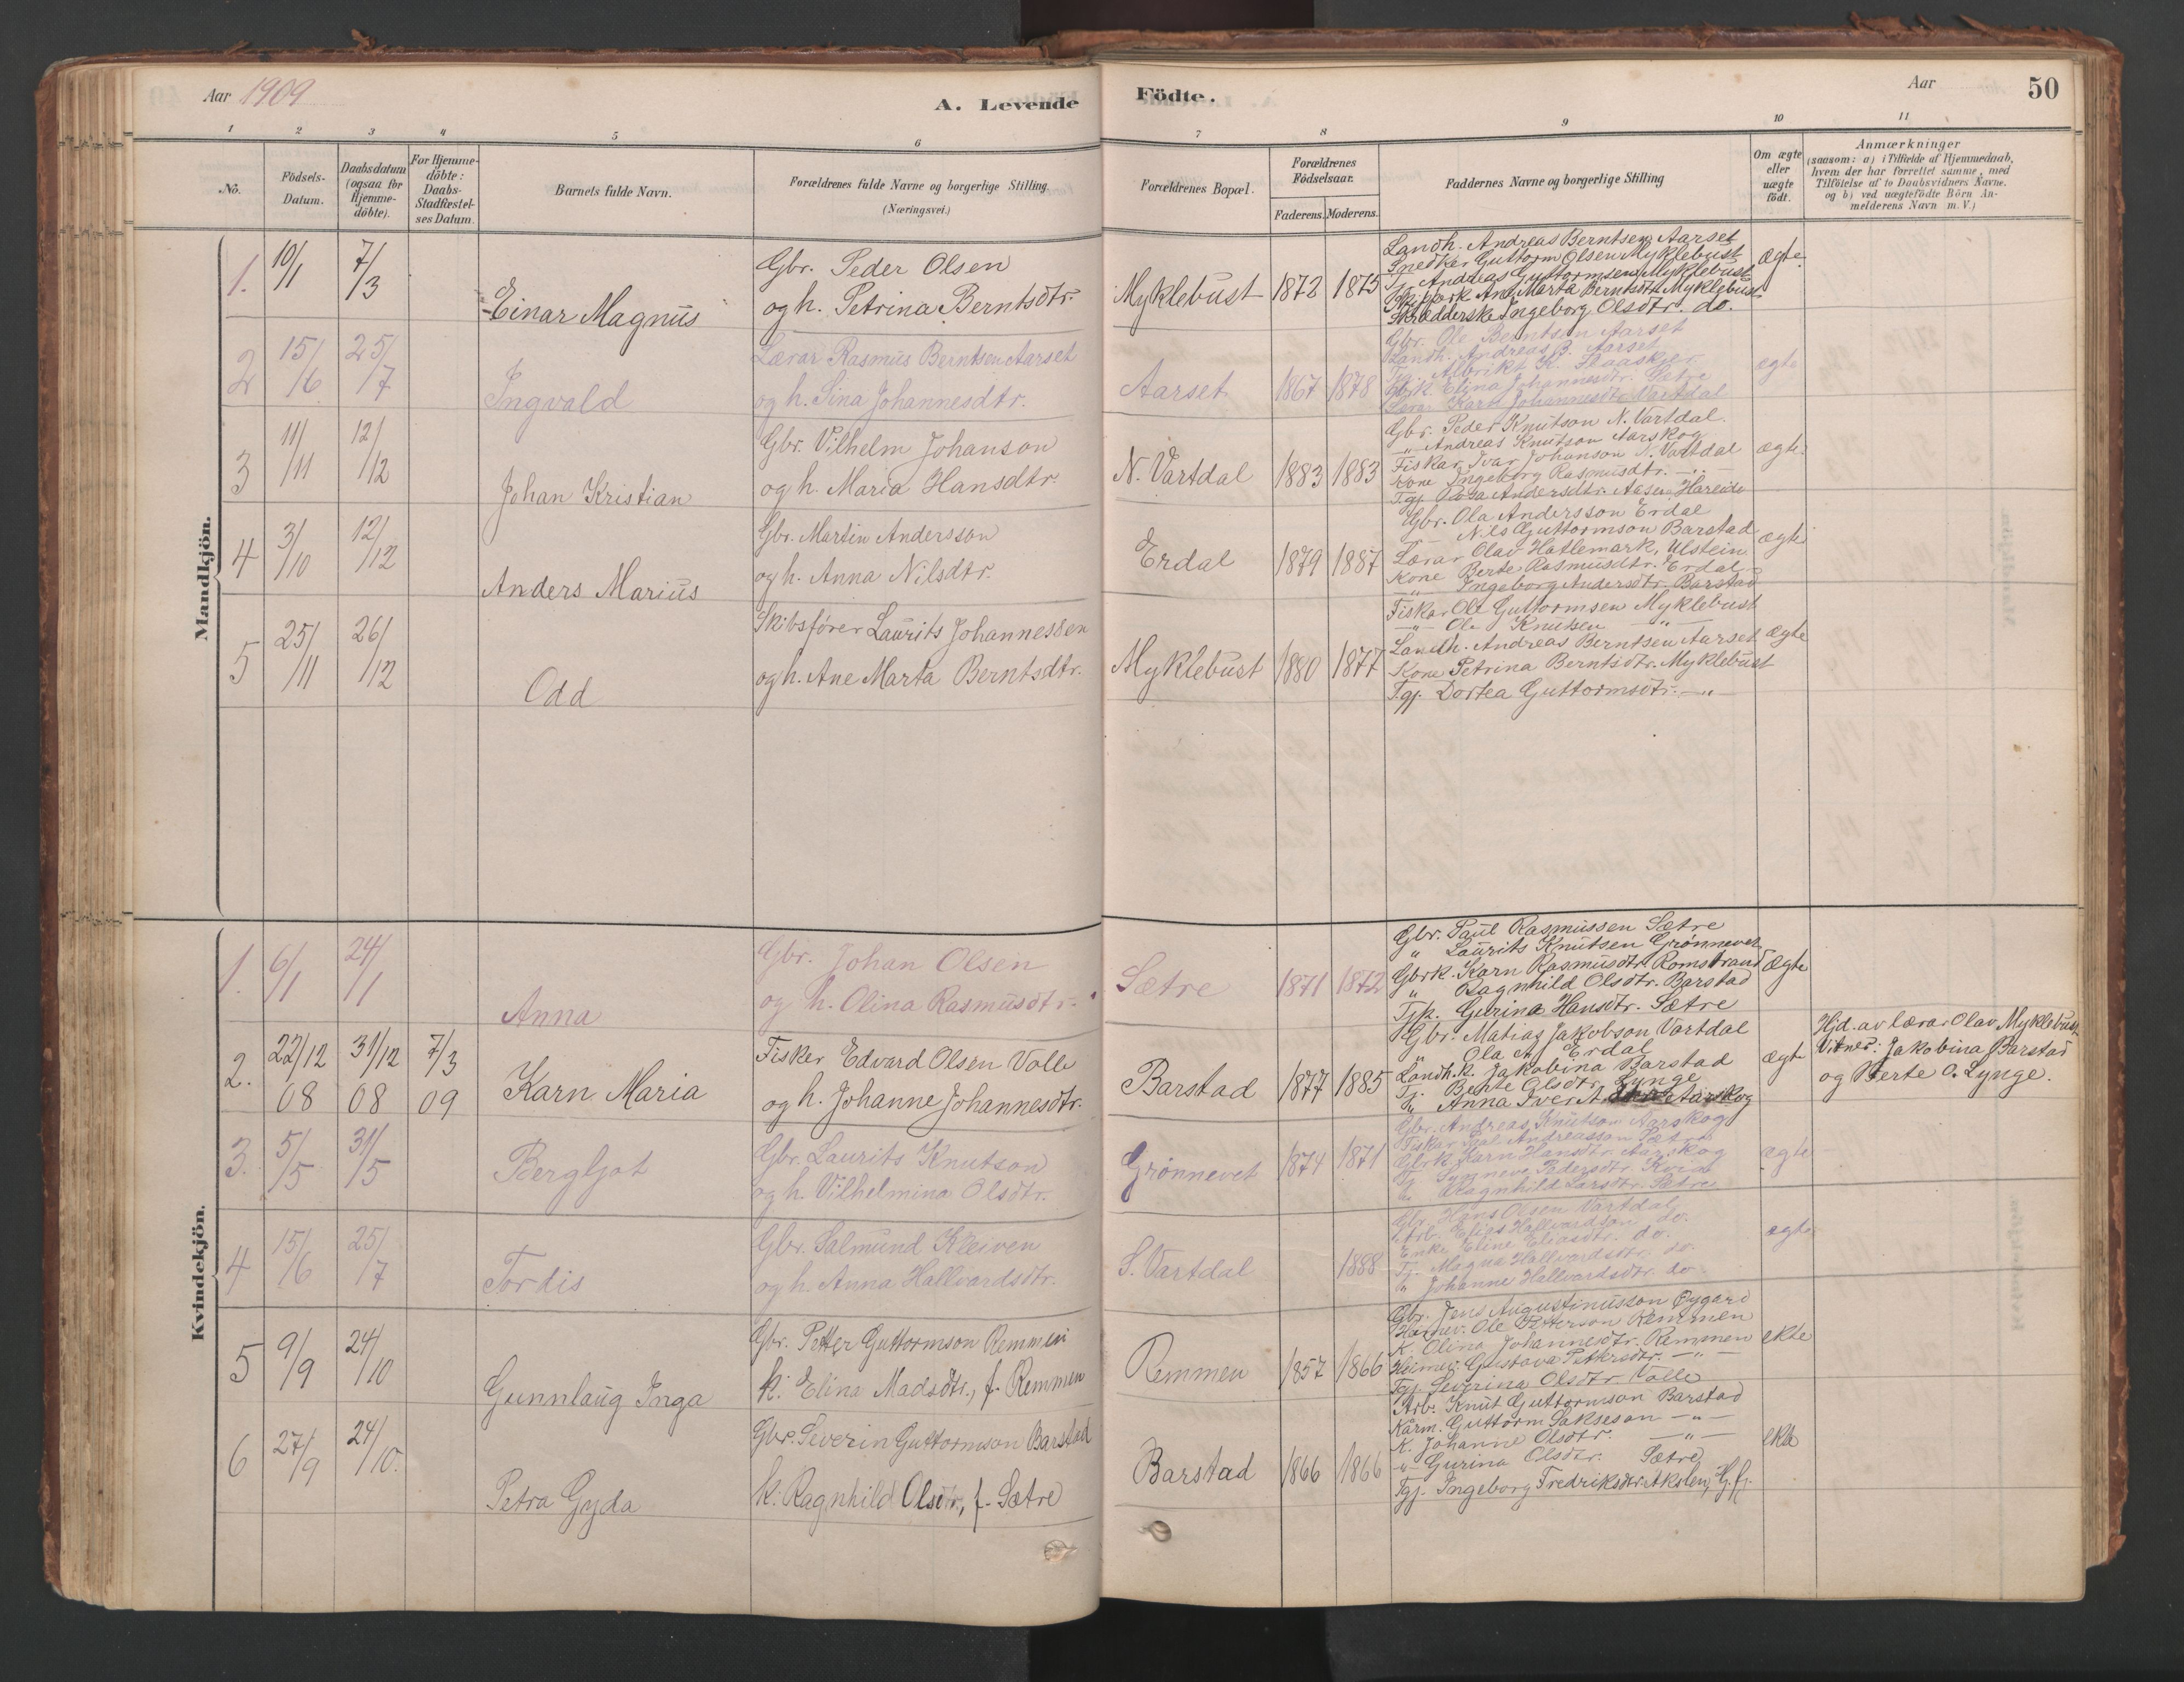 Aar 1909
A. Levende Födte.
Aar
50
1 2 3 4 5 6 7 8 9 10 11
No.
Födsels-Datum.
Daabsdatum (ogsaa for Hjemme-döbte).
For Hjemme-döbte: Daabs-Stadfæstel-ses Datum.
Barnets fulde Navn.
Forældrenes fulde Navne og borgerlige Stilling (Næringsvei.)
Forældrenes Bopæl.
Forældrenes Födselsaar.
Faderens. Moderens.
Faddernes Navne og borgerlige Stilling
Om ægte eller uægte födt.
Anmærkninger
(saasom: a) i Tilfælde af Hjemmedaab,
hvem der har forrettet samme, med
Tilföielse af to Daabsvidners Navne.
og b) ved uægtefödte Börn An-
melderens Navn m. V.)
Mandkjön.
1. 10/1 7/3 Einar Magnus
Gbr. Peder Olsen
og h. Petrina Berntsdtr.
Myklebust 1872 1875
Landh. Andreas Berntsen Aarset
Snedker Guttorm Olsen Myklebust
Tj. Andreas Guttormsen Myklebust
Ane Marta Berntsdtr. Myklebust
Skrædderske Ingeborg Olsdtr. do.
ægte.
2 15/6 25/7 Ingvald
Lærar Rasmus Berntsen Aarset
og h. Sina Johannesdtr.
Aarset 1867 1878
Gbr. Ole Berntsen Aarset
Landh. Andreas B. Aarset
Albrikt K. Flaaskjer
Gbrk. Elina Johannesdtr. Sætre
Lærar Karn Johannesdtr. Vartdal
ægte
3 11/11 12/12 Johan Kristian
Gbr. Vilhelm Johanson
og h. Maria Hansdtr.
N. Vartdal 1883 1883
Gbr. Peder Knutson N. Vartdal.
" Andreas Knutson Aarskog
Fiskar Ivar Johanson N. Vartdal
Kone Ingeborg Rasmusdtr. — " —
Tgj. Rosa Andersdtr. Aasen Hareide
ægte.
4 3/10 12/12 Anders Marius
Gbr. Martin Andersson
og h. Anna Nilsdtr.
Erdal 1879 1887
Gbr. Ola Andersson Erdal
— Nils Guttormson Barstad
Lærar Olav Hatlemark, Ulstein
Kone Berte Rasmusdtr. Erdal
— " — Ingeborg Andersdtr. Barstad
ægte
5 25/11 26/12 Odd
Skibsfører Laurits Johannessen
og h. Ane Marta Berntsdtr.
Myklebust 1880 1877
Fiskar Ole Guttormsen Myklebust
— " — Ole Knutsen — " —
Landh. Andreas Berntsen Aarset
Kone Petrina Berntsdtr. Myklebust
Tgj. Dortea Guttormsdtr. — " —
ægte
Kvindekjön.
1. 6/1 24/1 Anna
Gbr. Johan Olsen
og h. Olina Rasmusdtr.
Sætre 1871 1872
Gbr. Paul Rasmussen Sætre
" Laurits Knutsen Grønnevet
Gbrk. Karn Rasmusdtr. Romstrand
" Ragnhild Olsdtr. Barstad
Tjp. Gurina Hansdtr. Sætre
ægte
2. 22/12 08 31/12 08 7/3 09 Karn Maria
Fisker Edvard Olsen Volle
og h. Johanne Johannesdtr.
Barstad 1877 1885
Gbr. Matias Jakobson Vartdal
" Ola A. Erdal
Landh.k. Jakobina Barstad
Tj. Berte Olsdtr. Lynge
" Anna Iver A. Aarskog
ægte
Hjd. av lærar Olav Myklebust
Vitner: Jakobina Barstad
og Berte O. Lynge.
3. 5/5 31/5 Bergljot
Gbr. Laurits Knutson
og h. Vilhelmina Olsdtr.
Grønnevet 1874 1871
Gbr. Andreas Knutson Aarskog
Fiskar Andreasson Sætre
Gbrk. Karn Hansdtr. Aarskog
Tj. Synneve Pedersdtr. Kvien
" Ragnhild Larsdtr. Sætre
ægte
4 15/6 25/7 Tordis
Gbr. Salmund Kleiven
og h. Anna Hallvardsdtr.
S. Vartdal 1888
Gbr. Hans Olsen Vartdal
Arb. Elias Hallvardson do.
Enke Eline Eliasdtr. do.
Tj. Magna Hallvardsdtr. do.
" Johanne Hallvardsdtr. do.
ægte
5 9/9 24/10 Gunnlaug Inga
Gbr. Petter Guttormson Remmen
k. Elina Madsdtr., f. Remmen
Remmen 1857 1866
Gbr. Jens Augustinusson Øygard
Heimev. Ole Petterson Remmen
K. Olina Johannesdtr. Remmen
Heimev. Gustava Pettersdtr. — " —
Tgj. Severina Olsdtr. Volle
ekte
6 27/9 24/10. Petra Gyda
Gbr. Severin Guttormson Barstad
k. Ragnhild Olsdtr., f. Sætre
Barstad 1866 1866
Arb. Knut Guttormson Barstad
Kårm. Guttorm Sakseson — " —
K. Johanne Olsdtr. — " —
— " — Gurina Olsdtr. Sætre
Tgj. Ingeborg Fredriksdtr. Akslen, H.fj.
ekte